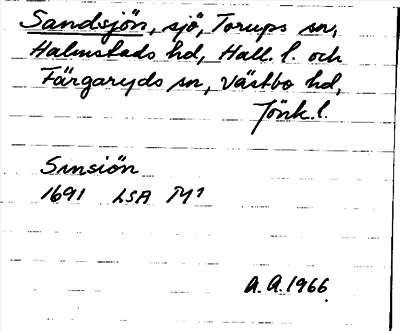 Sandsjön, sjö, Torups sn,
Halmstads hd, Hall. l. och
Färgaryds sn, Västbo hd,
Jönk. l.
Sinsiön
1691 LSA M1
A.A. 1966